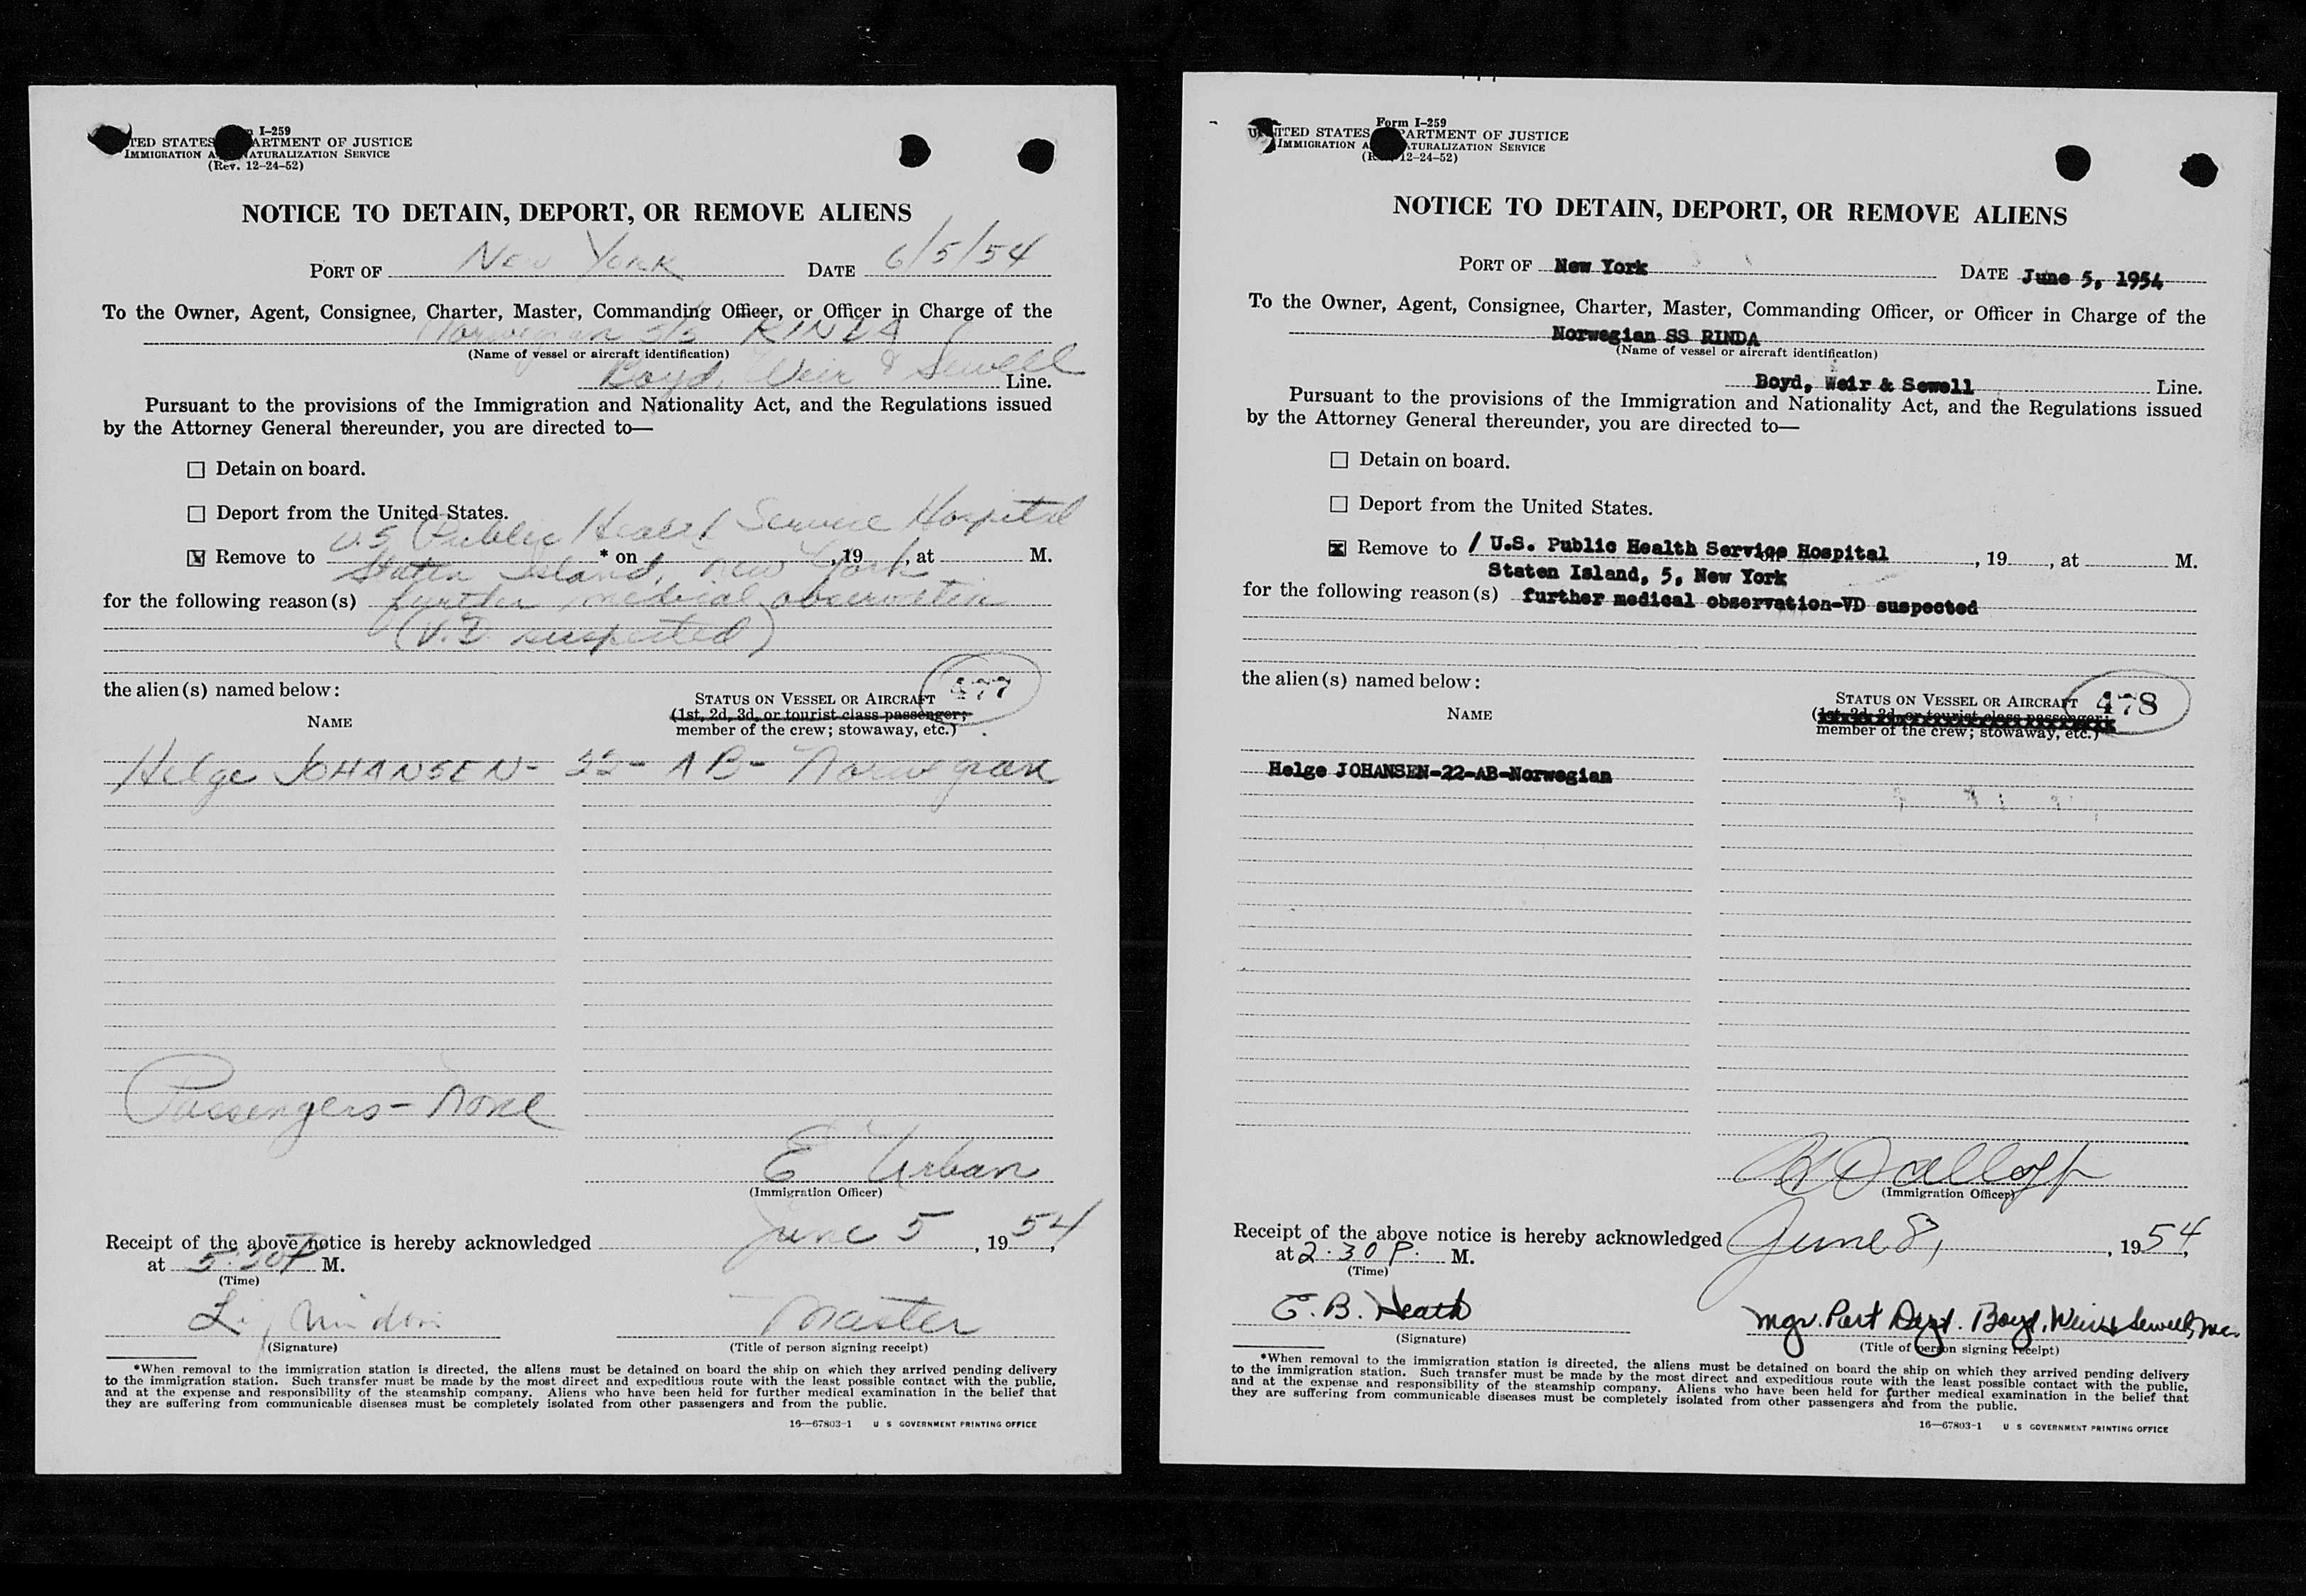 Form I-259
UNITED STATES DEPARTMENT OF JUSTICE
IMMIGRATION AND NATURALIZATION SERVICE
(Rev. 12-24-52)
NOTICE TO DETAIN, DEPORT, OR REMOVE ALIENS
PORT OF New York DATE 6/5/54
To the Owner, Agent, Consignee, Charter, Master, Commanding Officer, or Officer in Charge of the
Norwegian S/S RINDA
(Name of vessel or aircraft identification)
Boyd, Weir & Sewell Line.
Pursuant to the provisions of the Immigration and Nationality Act, and the Regulations issued
by the Attorney General thereunder, you are directed to—
☐ Detain on board.
☐ Deport from the United States.
U.S Public Health Service Hospital
☒ Remove to * on , 19 , at M.
Staten Island, New York
for the following reason(s) further medical observation
(V.D suspected)
the alien(s) named below:
477
NAME
STATUS ON VESSEL OR AIRCRAFT
(1st, 2d, 3d, or tourist class passenger;
member of the crew; stowaway, etc.)
Helge JOHANSEN- 22- AB- Norwegian
Passengers- None
E Urban
(Immigration Officer)
Receipt of the above notice is hereby acknowledged June 5, 1954,
at 5:30P M.
(Time)
Master
(Signature) (Title of person signing receipt)
*When removal to the immigration station is directed, the aliens must be detained on board the ship on which they arrived pending delivery
to the immigration station. Such transfer must be made by the most direct and expeditious route with the least possible contact with the public,
and at the expense and responsibility of the steamship company. Aliens who have been held for further medical examination in the belief that
they are suffering from communicable diseases must be completely isolated from other passengers and from the public.
16—67803-1 U S GOVERNMENT PRINTING OFFICE
Form I-259
UNITED STATES DEPARTMENT OF JUSTICE
IMMIGRATION AND NATURALIZATION SERVICE
(Rev. 12-24-52)
NOTICE TO DETAIN, DEPORT, OR REMOVE ALIENS
PORT OF New York DATE June 5, 1954
To the Owner, Agent, Consignee, Charter, Master, Commanding Officer, or Officer in Charge of the
Norwegian SS RINDA
(Name of vessel or aircraft identification)
Boyd, Weir & Sewell Line.
Pursuant to the provisions of the Immigration and Nationality Act, and the Regulations issued
by the Attorney General thereunder, you are directed to—
☐ Detain on board.
☐ Deport from the United States.
☒ Remove to / U.S. Public Health Service Hospital , 19 , at M.
Staten Island, 5, New York
for the following reason(s) further medical observation-VD suspected
the alien(s) named below:
478
NAME
STATUS ON VESSEL OR AIRCRAFT
(1st, 2d, 3d, or tourist class passenger;
member of the crew; stowaway, etc.)
Helge JOHANSEN-22-AB-Norwegian
(Immigration Officer)
Receipt of the above notice is hereby acknowledged June 8, , 1954,
at 2:30 P. M.
(Time)
E. B. Heath Mgr. Port Dept. Boyd, Weir & Sewell, Inc.
(Signature) (Title of person signing receipt)
*When removal to the immigration station is directed, the aliens must be detained on board the ship on which they arrived pending delivery
to the immigration station. Such transfer must be made by the most direct and expeditious route with the least possible contact with the public,
and at the expense and responsibility of the steamship company. Aliens who have been held for further medical examination in the belief that
they are suffering from communicable diseases must be completely isolated from other passengers and from the public.
16—67803-1 U S GOVERNMENT PRINTING OFFICE